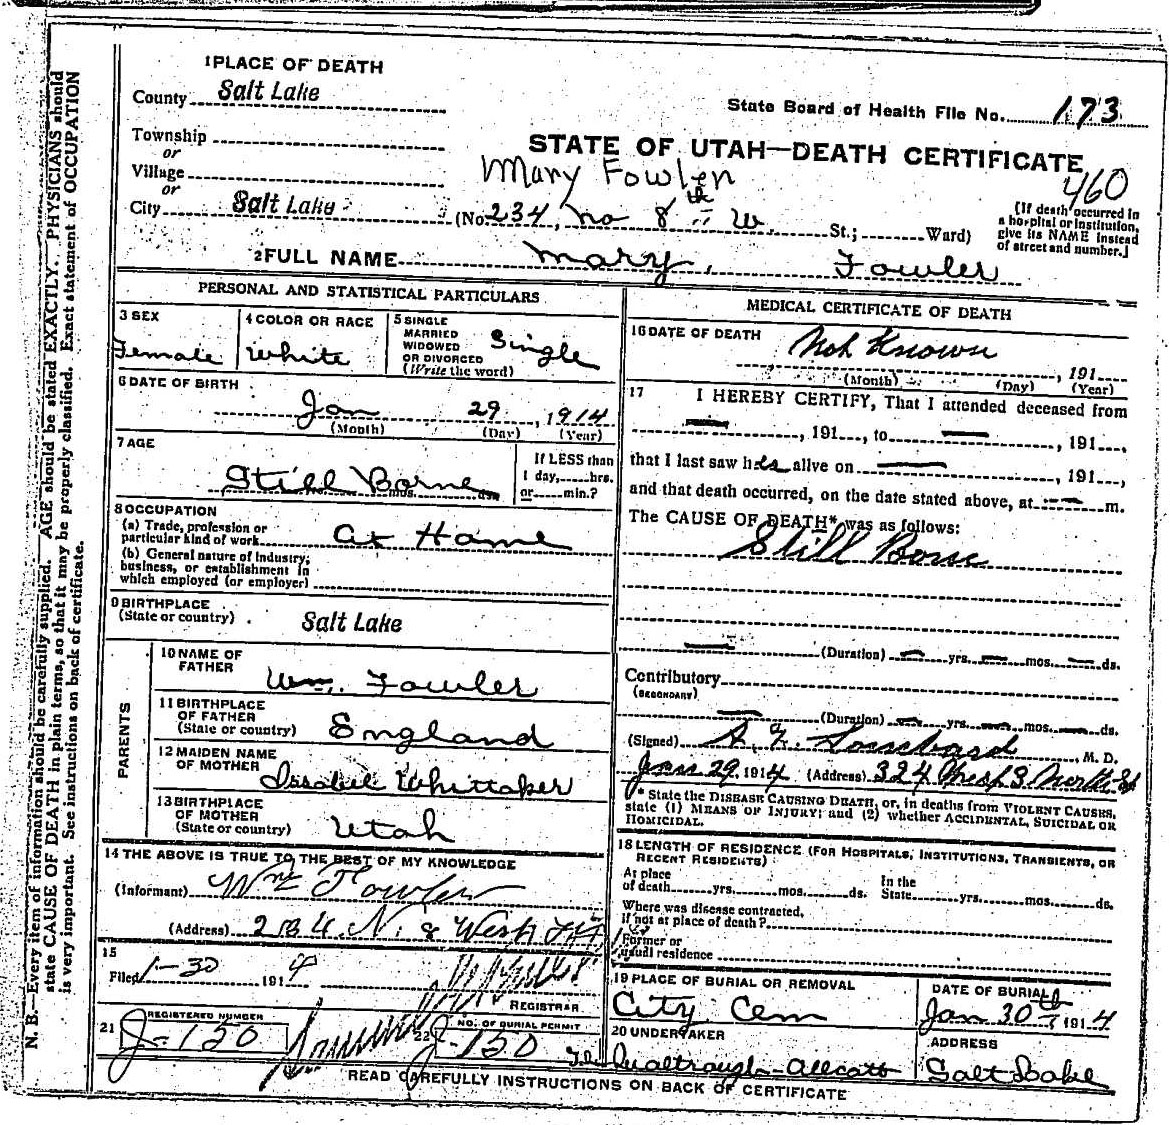 1 PLACE OF DEATH
County Salt Lake
State Board of Health File No. 173
Township
or
STATE OF UTAH—DEATH CERTIFICATE
Village
Mary Fowler
460
or
City Salt Lake (No. 234, No 8th W. St.; Ward)
(If death occurred in a hospital or institution, give its NAME instead of street and number.)
2 FULL NAME Mary, Fowler
PERSONAL AND STATISTICAL PARTICULARS
3 SEX
Female
4 COLOR OR RACE
White
5 SINGLE
MARRIED
WIDOWED
OR DIVORCED
(Write the word)
Single
6 DATE OF BIRTH
Jan 29, 1914
(Month) (Day) (Year)
7 AGE
Still Borne
mos. ds.
If LESS than
1 day, hrs.
or min.?
8 OCCUPATION
(a) Trade, profession or
particular kind of work At Home
(b) General nature of Industry,
business, or establishment in
which employed (or employer)
9 BIRTHPLACE
(State or country) Salt Lake
PARENTS
10 NAME OF
FATHER Wm. Fowler
11 BIRTHPLACE
OF FATHER
(State or country) England
12 MAIDEN NAME
OF MOTHER Issabel Whittaker
13 BIRTHPLACE
OF MOTHER
(State or country) Utah
14 THE ABOVE IS TRUE TO THE BEST OF MY KNOWLEDGE
(Informant) Wm Fowler
(Address) 234 N. 8 West
15
Filed 1-30 1914
REGISTRAR
21 REGISTERED NUMBER
J-150
22 NO. OF BURIAL PERMIT
J-150
MEDICAL CERTIFICATE OF DEATH
16 DATE OF DEATH Not Known
, 191
(Month) (Day) (Year)
17 I HEREBY CERTIFY, That I attended deceased from
— , 191 , to — , 191 ,
that I last saw h alive on — 191 ,
and that death occurred, on the date stated above, at — m.
The CAUSE OF DEATH* was as follows:
Still Borne
— (Duration) — yrs. — mos. — ds.
Contributory
(SECONDARY)
— (Duration) — yrs. — mos. — ds.
(Signed) , M. D.
Jan 29, 1914 (Address) 324 West 3 North St
* State the DISEASE CAUSING DEATH, or, in deaths from VIOLENT CAUSES,
state (1) MEANS OF INJURY; and (2) whether ACCIDENTAL, SUICIDAL OR
HOMICIDAL.
18 LENGTH OF RESIDENCE (FOR HOSPITALS, INSTITUTIONS, TRANSIENTS, OR
RECENT RESIDENTS)
At place
of death yrs. mos. ds.
In the
State yrs. mos. ds.
Where was disease contracted,
if not at place of death?
Former or
usual residence
19 PLACE OF BURIAL OR REMOVAL
City Cem
DATE OF BURIAL
Jan 30th, 1914
20 UNDERTAKER
ADDRESS
Salt Lake
READ CAREFULLY INSTRUCTIONS ON BACK OF CERTIFICATE
N. B.—Every item of information should be carefully supplied. AGE should be stated EXACTLY. PHYSICIANS should
state CAUSE OF DEATH in plain terms, so that it may be properly classified. Exact statement of OCCUPATION
is very important. See instructions on back of certificate.